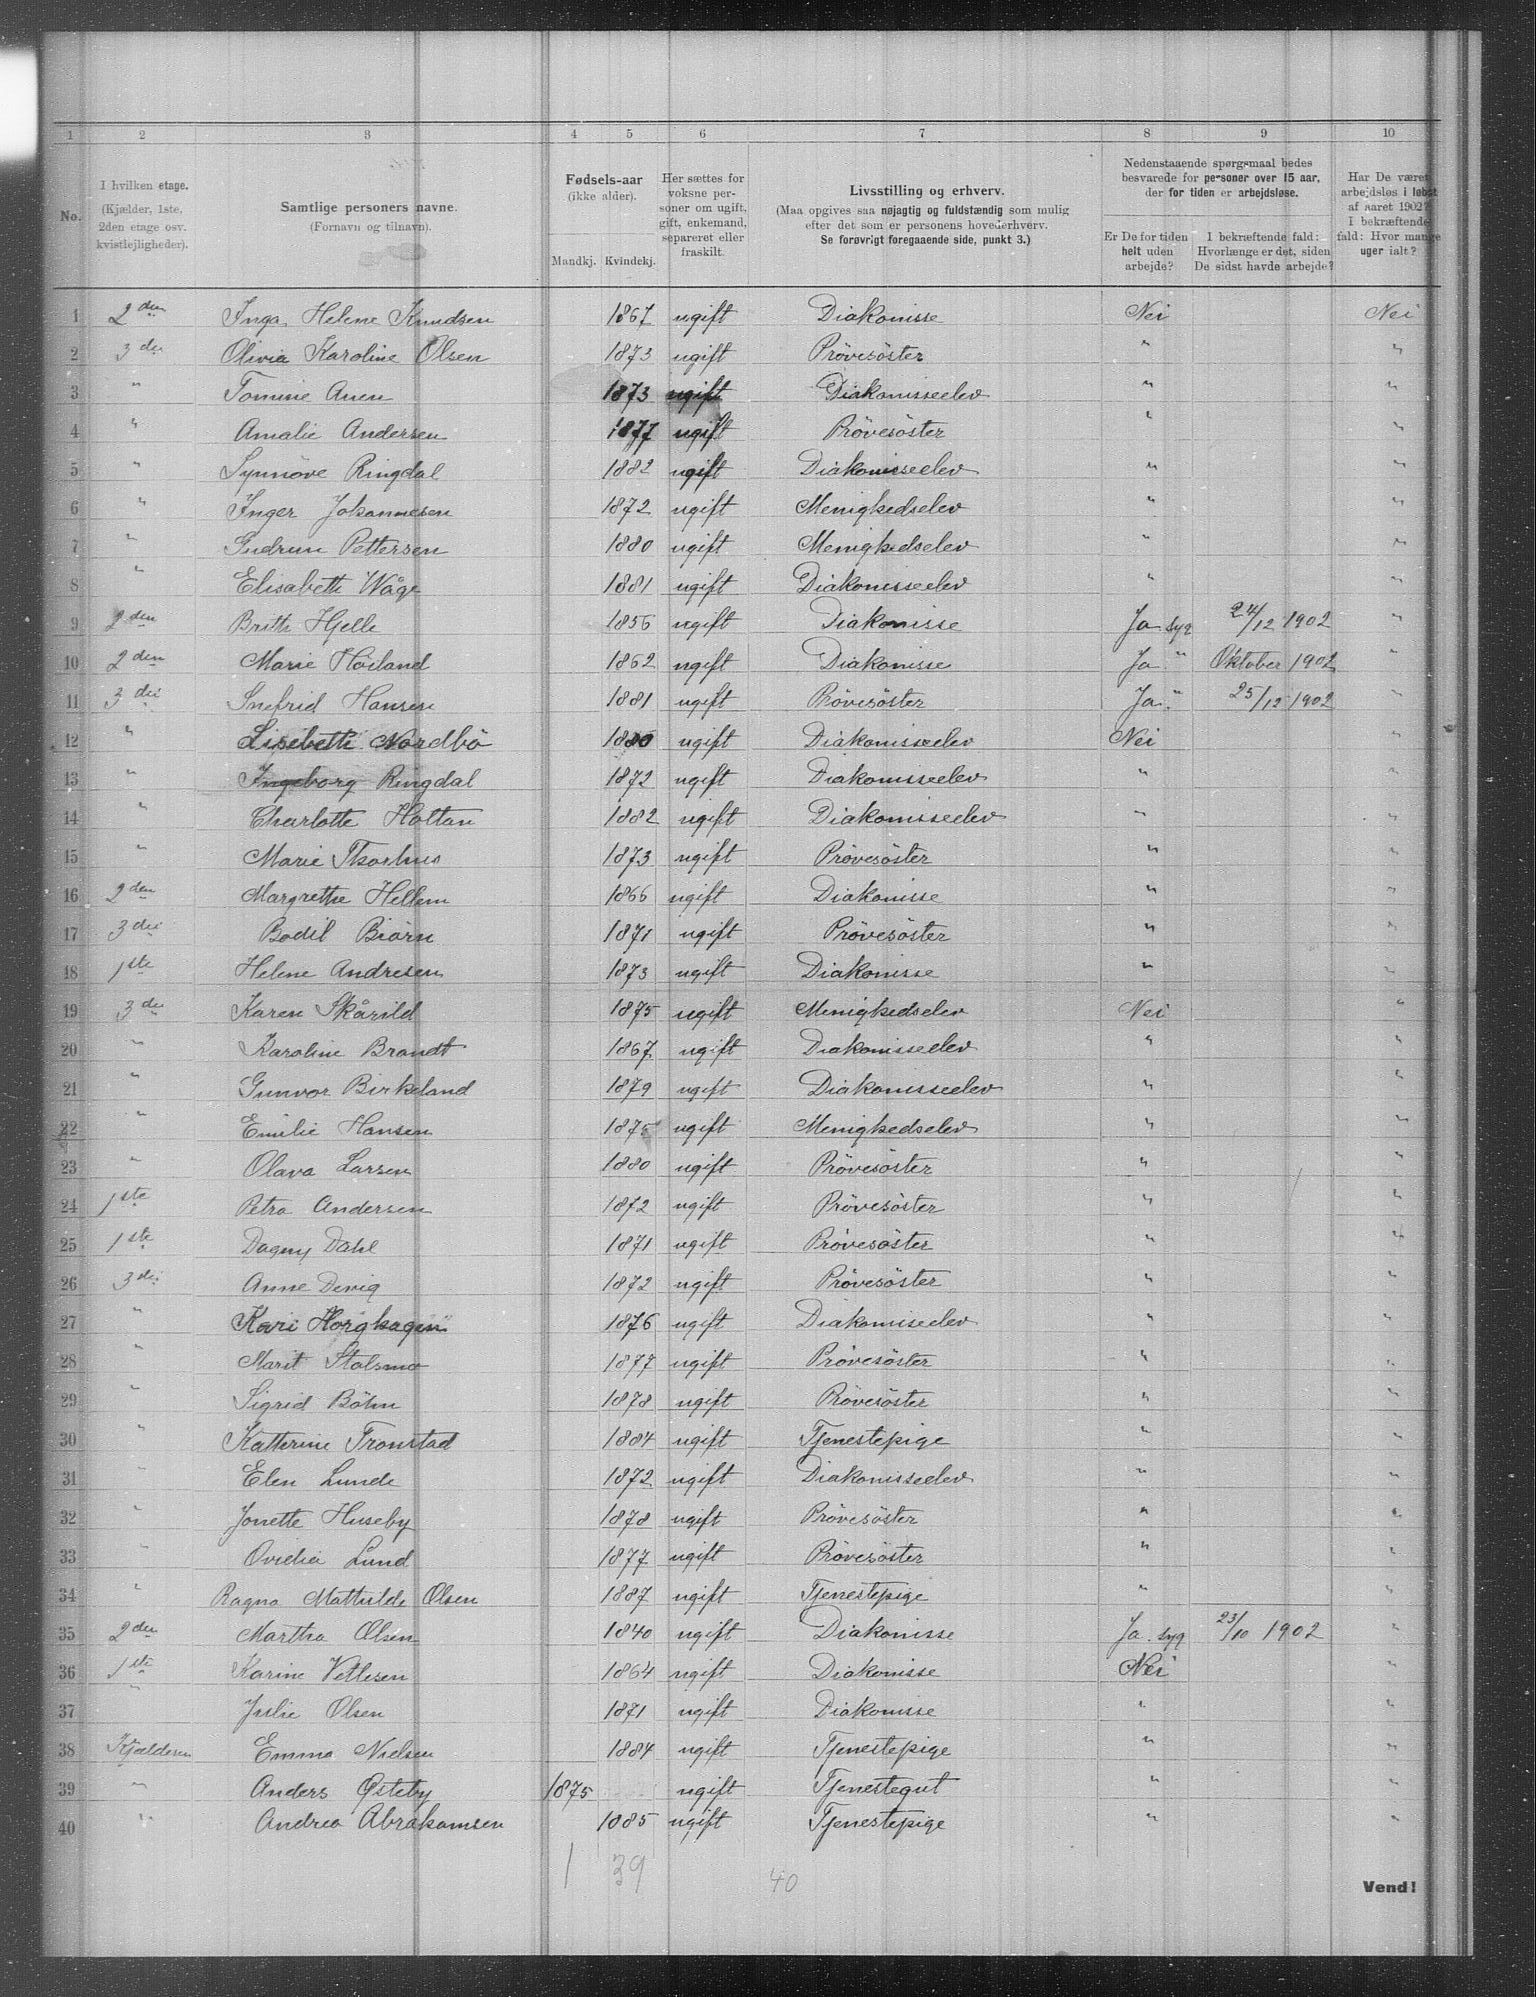 1 2 3 4 5 6 7 8 9 10
No.
I hvilken etage.
(Kjælder, 1ste,
2den etage osv.
kvistlejligheder).
Samtlige personers navne.
(Fornavn og tilnavn).
Fødsels-aar
(ikke alder).
Mandkj. Kvindekj.
Her sættes for
voksne per-
soner om ugift,
gift, enkemand,
separeret eller
fraskilt.
Livsstilling og erhverv.
(Maa opgives saa nøjagtig og fuldstændig som mulig
efter det som er personens hovederhverv.
Se forøvrigt foregaaende side, punkt 3.)
Nedenstaaende spørgsmaal bedes
besvarede for personer over 15 aar,
der for tiden er arbejdsløse.
Er De for tiden
helt uden
arbejde?
I bekræftende fald:
Hvorlænge er det, siden
De sidst havde arbejde?
Har De været
arbejdsløs i løbet
af aaret 1902?
I bekræftende
fald: Hvor mange
uger ialt?
1 2den Inga Helene Knudsen 1867 ugift Diakonisse Nei Nei
2 3die Olivia Karoline Olsen 1873 ugift Prövesöster " "
3 " Tomine Auen 1873 ugift Diakonisseelev " "
4 " Amalie Andersen 1877 ugift Prövesöster " "
5 " Synnöve Ringdal 1882 ugift Diakonisseelev " "
6 " Inger Johannesen 1872 ugift Menighedselev " "
7 " Gudrun Pettersen 1880 ugift Menighedselev " "
8 " Elisabeth Wåge 1881 ugift Diakonisseelev " "
9 2den Brith Hjelle 1856 ugift Diakonisse Ja syg 24/12 1902 "
10 2den Marie Höiland 1862 ugift Diakonisse Ja " Oktober 1902 "
11 3die Snefrid Hansen 1881 ugift Prövesöster Ja " 25/12 1902 "
12 " Lisebeth Nordbö 1880 ugift Diakonisseelev Nei "
13 " Ingeborg Ringdal 1872 ugift Diakonisseelev " "
14 " Charlotte Holtan 1882 ugift Diakonisseelev " "
15 " Marie 1873 ugift Prövesöster " "
16 2den Margrethe Hellem 1866 ugift Diakonisse " "
17 3die Bodil Biörn 1871 ugift Prövesöster " "
18 1ste Helene Andresen 1873 ugift Diakonisse " "
19 3die Karen Skårild 1875 ugift Menighedselev Nei "
20 " Karoline Brandt 1867 ugift Diakonisseelev " "
21 " Gunvor Birkeland 1879 ugift Diakonisseelev " "
22 " Emilie Hansen 1875 ugift Menighedselev " "
23 " Olava Larsen 1880 ugift Prövesöster " "
24 1ste Petra Andersen 1872 ugift Prövesöster " "
25 1ste Dagny Dahl 1871 ugift Prövesöster " "
26 3die Anne Devig 1872 ugift Prövesöster " "
27 " Kari Horghagen 1876 ugift Diakonisseelev " "
28 " Marit Stolsmo 1877 ugift Prövesöster " "
29 " Sigrid Böhn 1878 ugift Prövesöster " "
30 " Katterine Tronstad 1884 ugift Tjenestepige " "
31 " Elen Lunde 1872 ugift Diakonisseelev " "
32 " Jonette Huseby 1878 ugift Prövesöster " "
33 " Ovidia Lund 1877 ugift Prövesöster " "
34 " Ragna Mathilde Olsen 1887 ugift Tjenestepige " "
35 2den Martha Olsen 1840 ugift Diakonisse Ja syg 23/10 1902 "
36 1ste Karine Vettesen 1864 ugift Diakonisse Nei "
37 " Julie Olsen 1871 ugift Diakonisse " "
38 Kjælderen Emma Nielsen 1884 ugift Tjenestepige " "
39 " Anders Østeby 1875 ugift Tjenestegut " "
40 " Andrea Abrahamsen 1885 ugift Tjenestepige " "
1 39 40
Vend!